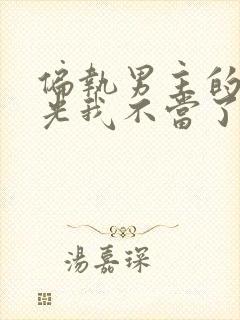 偏執男主的
光我不當了
湯嘉琛